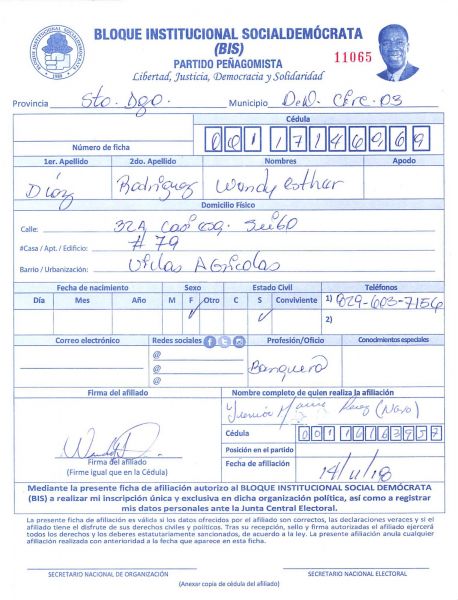 BLOQUE INSTITUCIONAL SOCIALDEMÓCRATA
(BIS)
PARTIDO PEÑAGOMISTA
Libertad, Justicia, Democracia y Solidaridad
11065
Provincia Sto. Dgo. Municipio D.N. Circ. 03
Cédula
Número de ficha
1er. Apellido 2do. Apellido Nombres Apodo
Díaz Rodríguez Wendy Esther
Domicilio Físico
Calle: 32A
#Casa / Apt. / Edificio: # 79
Barrio / Urbanización: Villas Agrícolas
Fecha de nacimiento Sexo Estado Civil Teléfonos
Día Mes Año M F Otro C S Conviviente 1) 829-603-7156
2)
Correo electrónico Redes sociales Profesión/Oficio Conocimientos especiales
@
@
@
Banquera
Firma del afiliado Nombre completo de quien realiza la afiliación
Cédula 00116163957
Posición en el partido
Firma del afiliado
(Firme igual que en la Cédula)
Fecha de afiliación 14/11/18
Mediante la presente ficha de afiliación autorizo al BLOQUE INSTITUCIONAL SOCIAL DEMÓCRATA
(BIS) a realizar mi inscripción única y exclusiva en dicha organización política, así como a registrar
mis datos personales ante la Junta Central Electoral.
La presente ficha de afiliación es válido si los datos ofrecidos por el afiliado son correctos, las declaraciones veraces y si el
afiliado tiene el disfrute de sus derechos civiles y políticos. Tras su recepción, sello y firma autorizadas el afiliado ejercerá
todos los derechos y los deberes estatutariamente sancionados, de acuerdo a la ley. La presente afiliación anula cualquier
afiliación realizada con anterioridad a la fecha que aparece en esta ficha.
SECRETARIO NACIONAL DE ORGANIZACIÓN SECRETARIO NACIONAL ELECTORAL
(Anexar copia de cédula del afiliado)